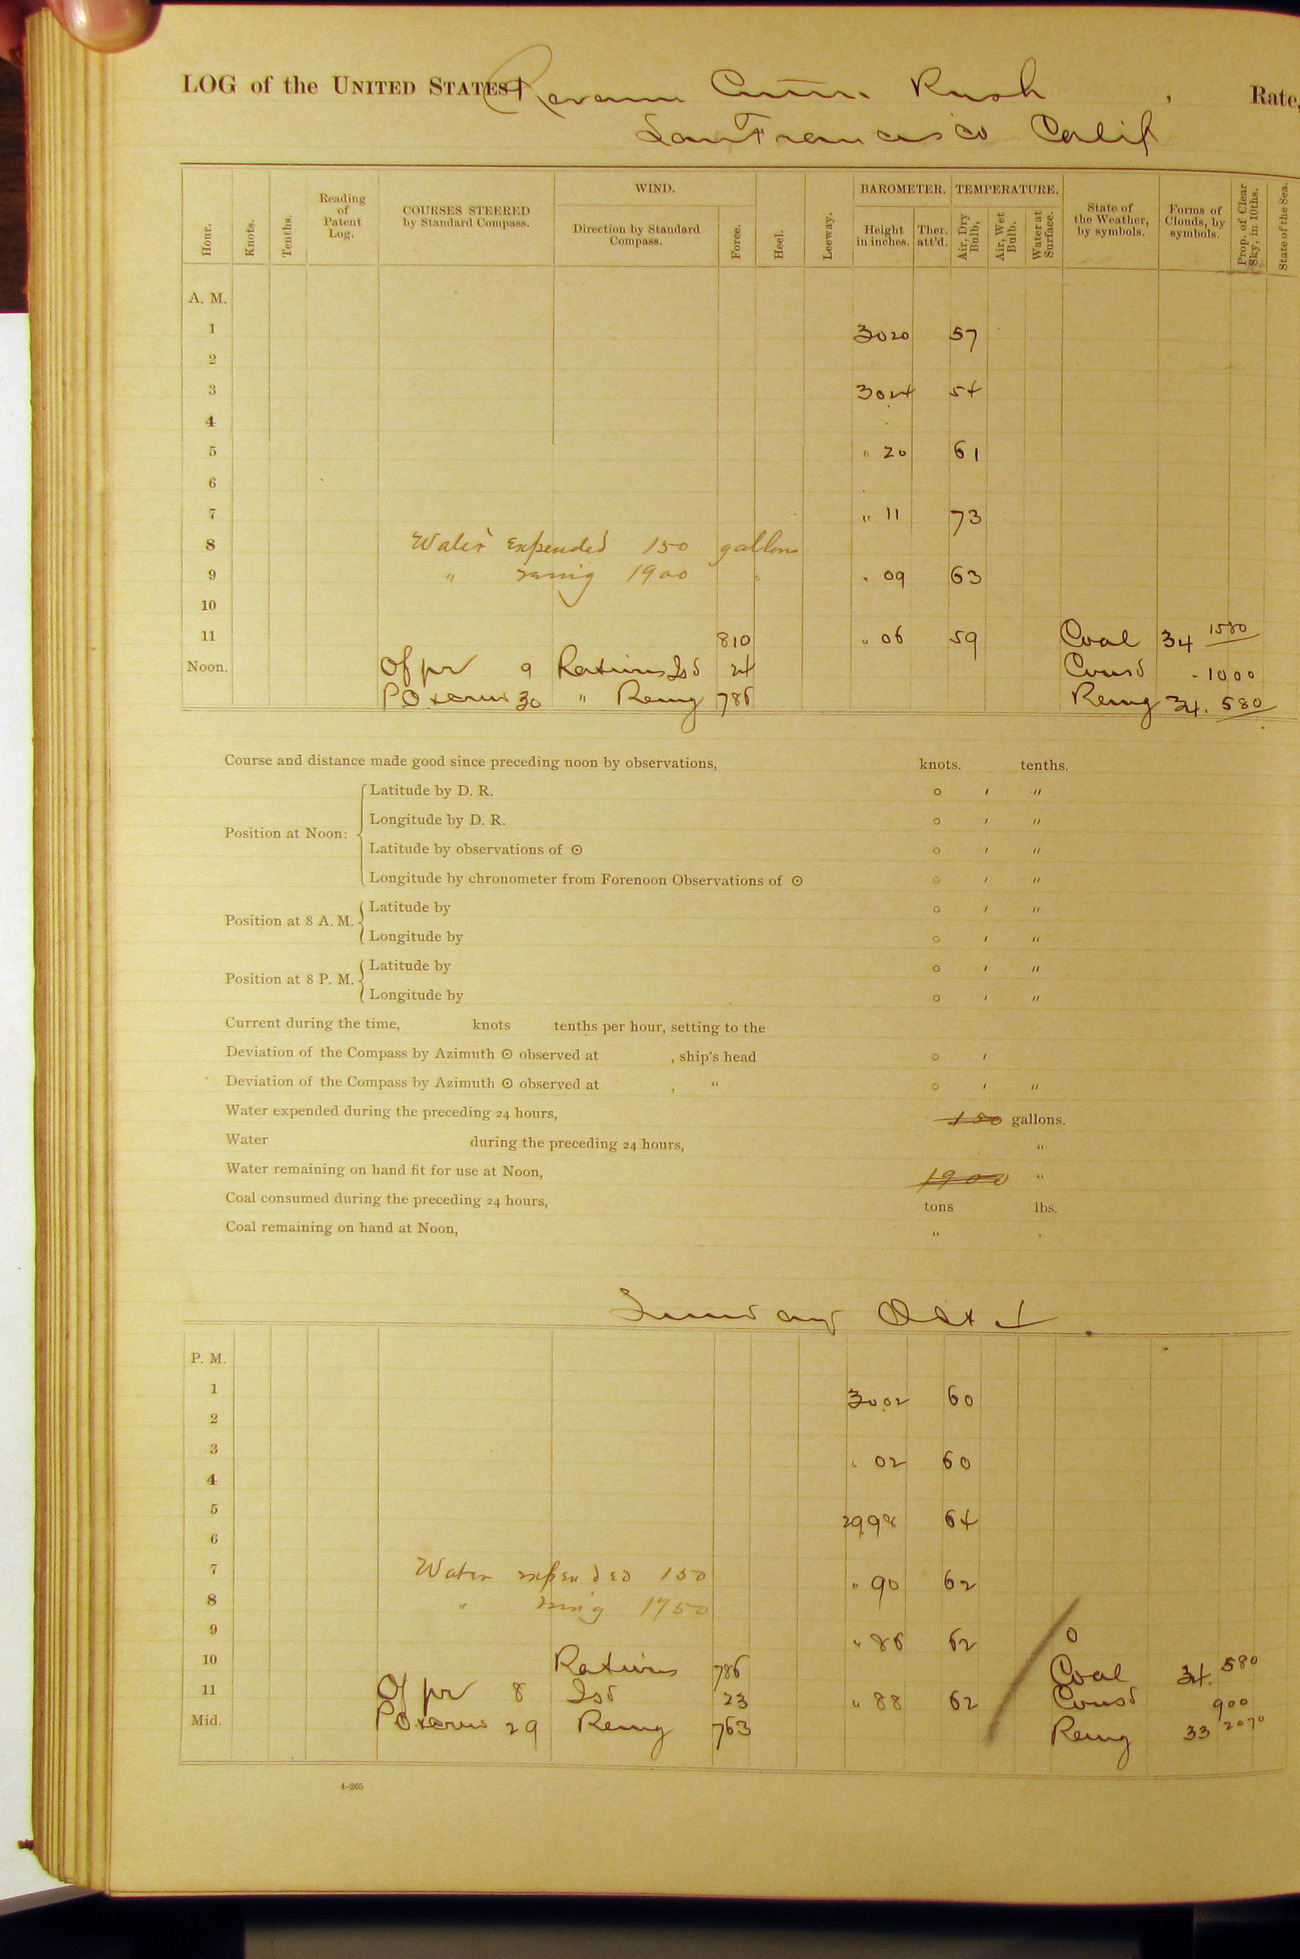 LOG of the UNITED STATES Revenue Cutter Rush , Rate,
San Francisco Calif
Hour. Knots. Tenths. Reading of Patent Log. COURSES STEERED by Standard Compass. WIND. Direction by Standard Compass. Force. Heel. Leeway. BAROMETER. Height in inches. Ther. att'd. TEMPERATURE. Air, Dry Bulb, Air, Wet Bulb. Water at Surface. State of the Weather, by symbols. Forms of Clouds, by symbols. Prop. of Clear Sky, in 10ths. State of the Sea.
A. M.
1 3020 57
2
3 3024 54
4
5 " 20 61
6
7 " 11 73
8 Water expended 150 gallons
9 " remg 1900 " " 09 63
10
11 810 " 06 59 Coal 34 1580
Noon. Of pr 9 Rations Isd 24 Consd 1000
P O & crew 30 " Remg 786 Remg 34. 580
Course and distance made good since preceding noon by observations, knots. tenths.
Position at Noon:
Latitude by D. R. ° ′ ″
Longitude by D. R. ° ′ ″
Latitude by observations of ☉ ° ′ ″
Longitude by chronometer from Forenoon Observations of ☉ ° ′ ″
Position at 8 A. M.
Latitude by ° ′ ″
Longitude by ° ′ ″
Position at 8 P. M.
Latitude by ° ′ ″
Longitude by ° ′ ″
Current during the time, knots tenths per hour, setting to the
Deviation of the Compass by Azimuth ☉ observed at , ship's head ° ′
Deviation of the Compass by Azimuth ☉ observed at , " ° ′ ″
Water expended during the preceding 24 hours, 150 gallons.
Water during the preceding 24 hours, "
Water remaining on hand fit for use at Noon, 1900 "
Coal consumed during the preceding 24 hours, tons lbs.
Coal remaining on hand at Noon, "
Sunday Oct 1
P. M.
1 3002 60
2
3 " 02 60
4
5 2998 64
6
7 Water expended 150 " 90 62
8 " remg 1750
9 " 86 62 0
10 Rations 786 Coal 34. 580
11 Of pr 8 Isd 23 " 88 62 Consd 900
Mid. P O & crew 29 Remg 763 Remg 33 2070
4-265